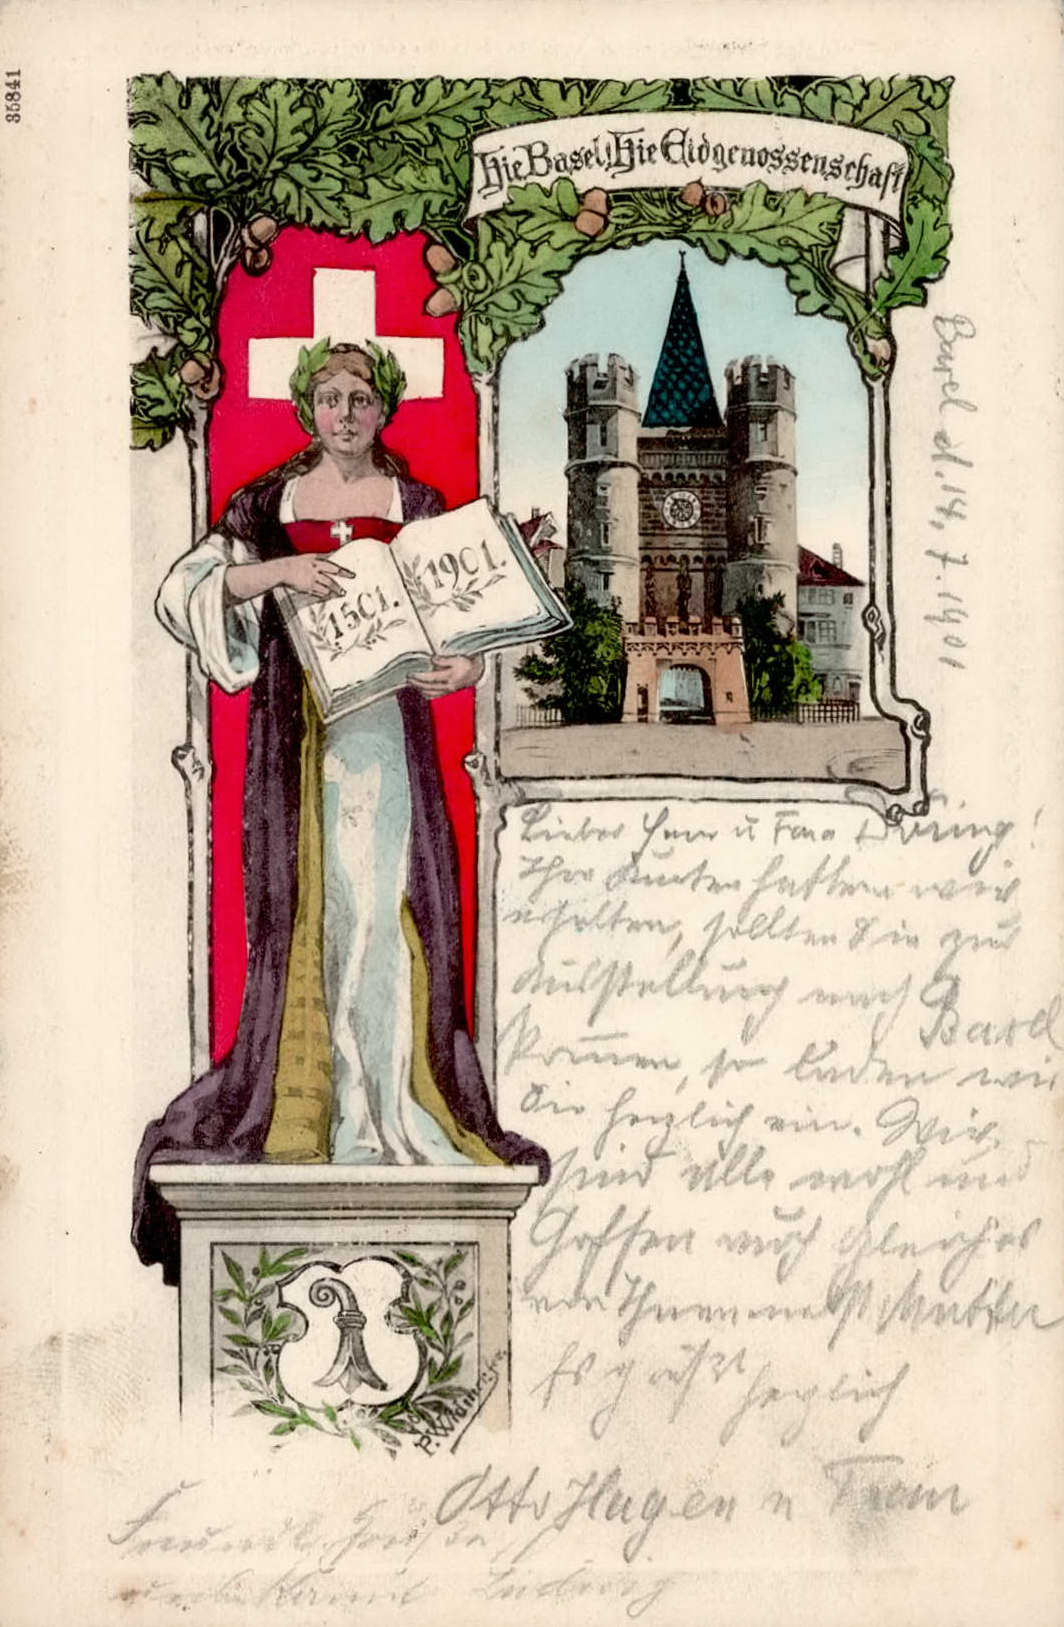 35841
Hie Basel! Hie Eidgenossenschaft
1501. 1901.
Basel d. 14. 7. 1901
Liebes Herr u Frau Döring!
Ihre Karten hatten wir
erhalten, sollten Sie zur
Ausstellung nach Basel
kommen, so laden wir
Sie herzlich ein. Wir
sind alle wohl und
hoffen auch gleiches
von Ihnen
Es grüßt herzlich
Otto Hagen u Frau
Freundl. Grüße
Ludwig